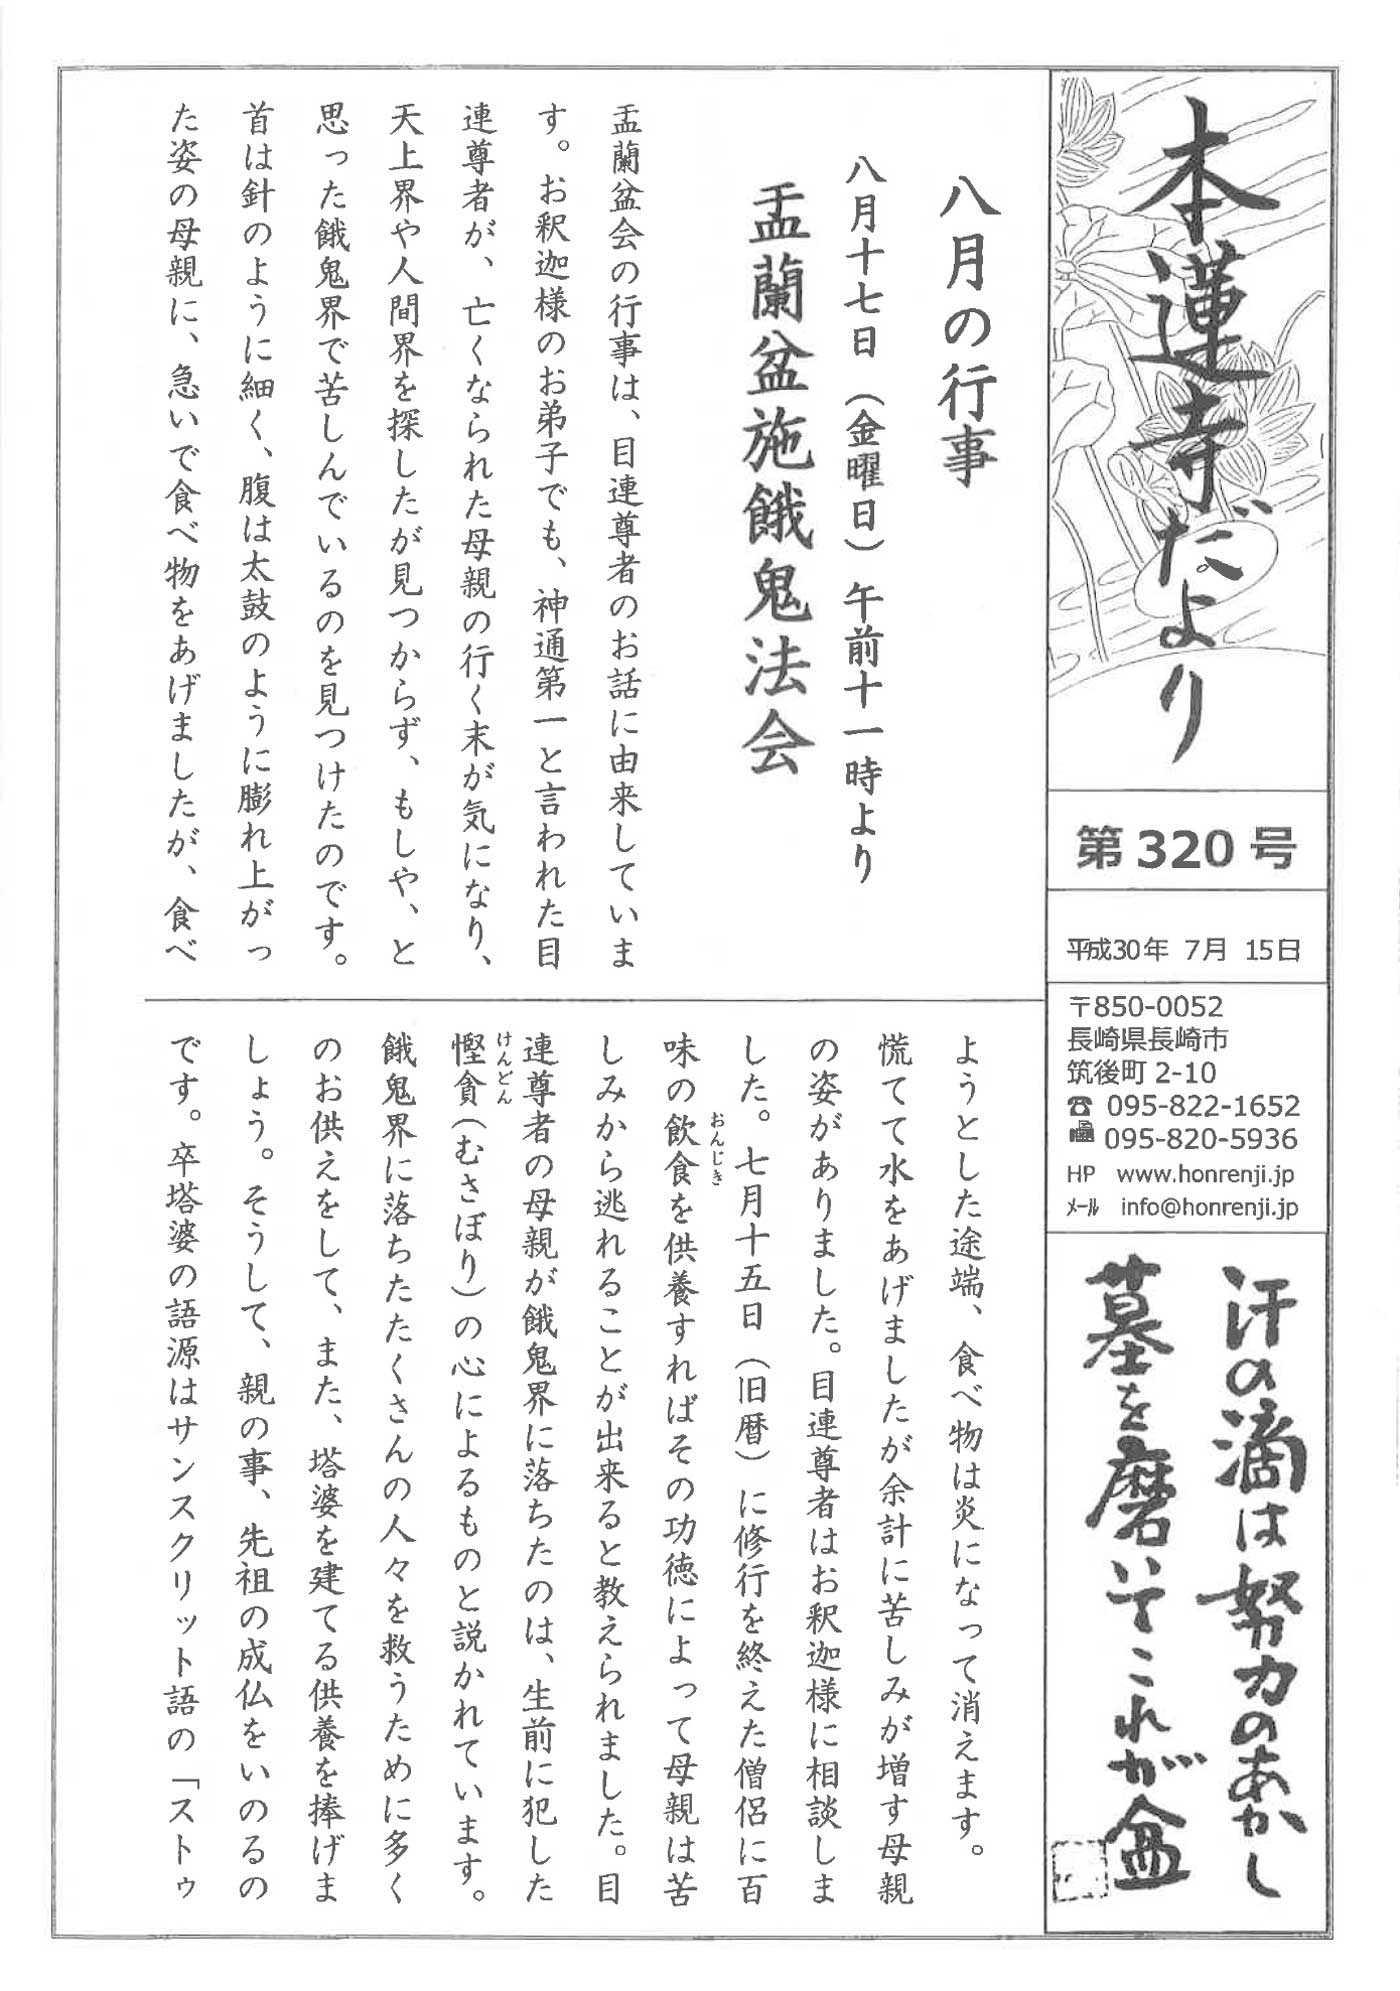 本蓮寺だより
第320号
平成30年 7月 15日
〒850-0052
長崎県長崎市
筑後町 2-10
☎ 095-822-1652
095-820-5936
HP www.honrenji.jp
メール info@honrenji.jp
汗の滴は努力のあかし
墓を磨いてこれが盆
八月の行事
八月十七日（金曜日）午前十一時より
盂蘭盆施餓鬼法会
盂蘭盆会の行事は、目連尊者のお話に由来していま
す。お釈迦様のお弟子でも、神通第一と言われた目
連尊者が、亡くなられた母親の行く末が気になり、
天上界や人間界を探したが見つからず、もしや、と
思った餓鬼界で苦しんでいるのを見つけたのです。
首は針のように細く、腹は太鼓のように膨れ上がっ
た姿の母親に、急いで食べ物をあげましたが、食べ
ようとした途端、食べ物は炎になって消えます。
慌てて水をあげましたが余計に苦しみが増す母親
の姿がありました。目連尊者はお釈迦様に相談しま
した。七月十五日（旧暦）に修行を終えた僧侶に百
味の飲食を供養すればその功徳によって母親は苦
おんじき
しみから逃れることが出来ると教えられました。目
連尊者の母親が餓鬼界に落ちたのは、生前に犯した
慳貪（むさぼり）の心によるものと説かれています。
けんどん
餓鬼界に落ちたたくさんの人々を救うために多く
のお供えをして、また、塔婆を建てる供養を捧げま
しょう。そうして、親の事、先祖の成仏をいのるの
です。卒塔婆の語源はサンスクリット語の「ストゥ